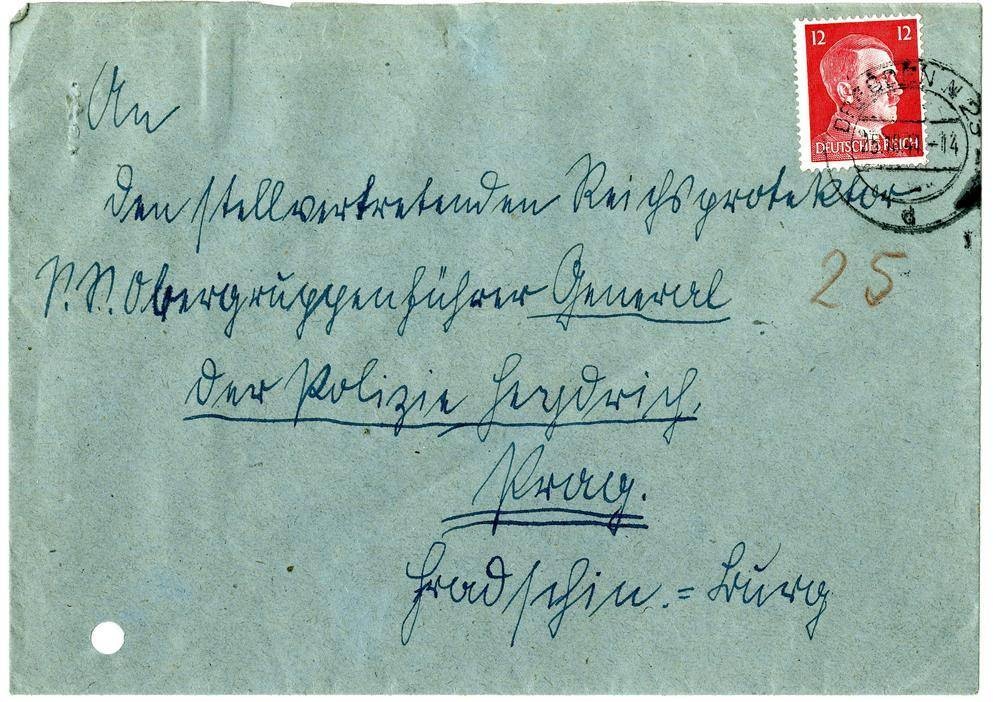 12 12
DEUTSCHES REICH
DRESDEN N 23
-14
d
An
den stellvertretenden Reichsprotektor
S.S. Obergruppenführer General
der Polizie Heydrich.
Prag.
Hradschin.=Burg
25